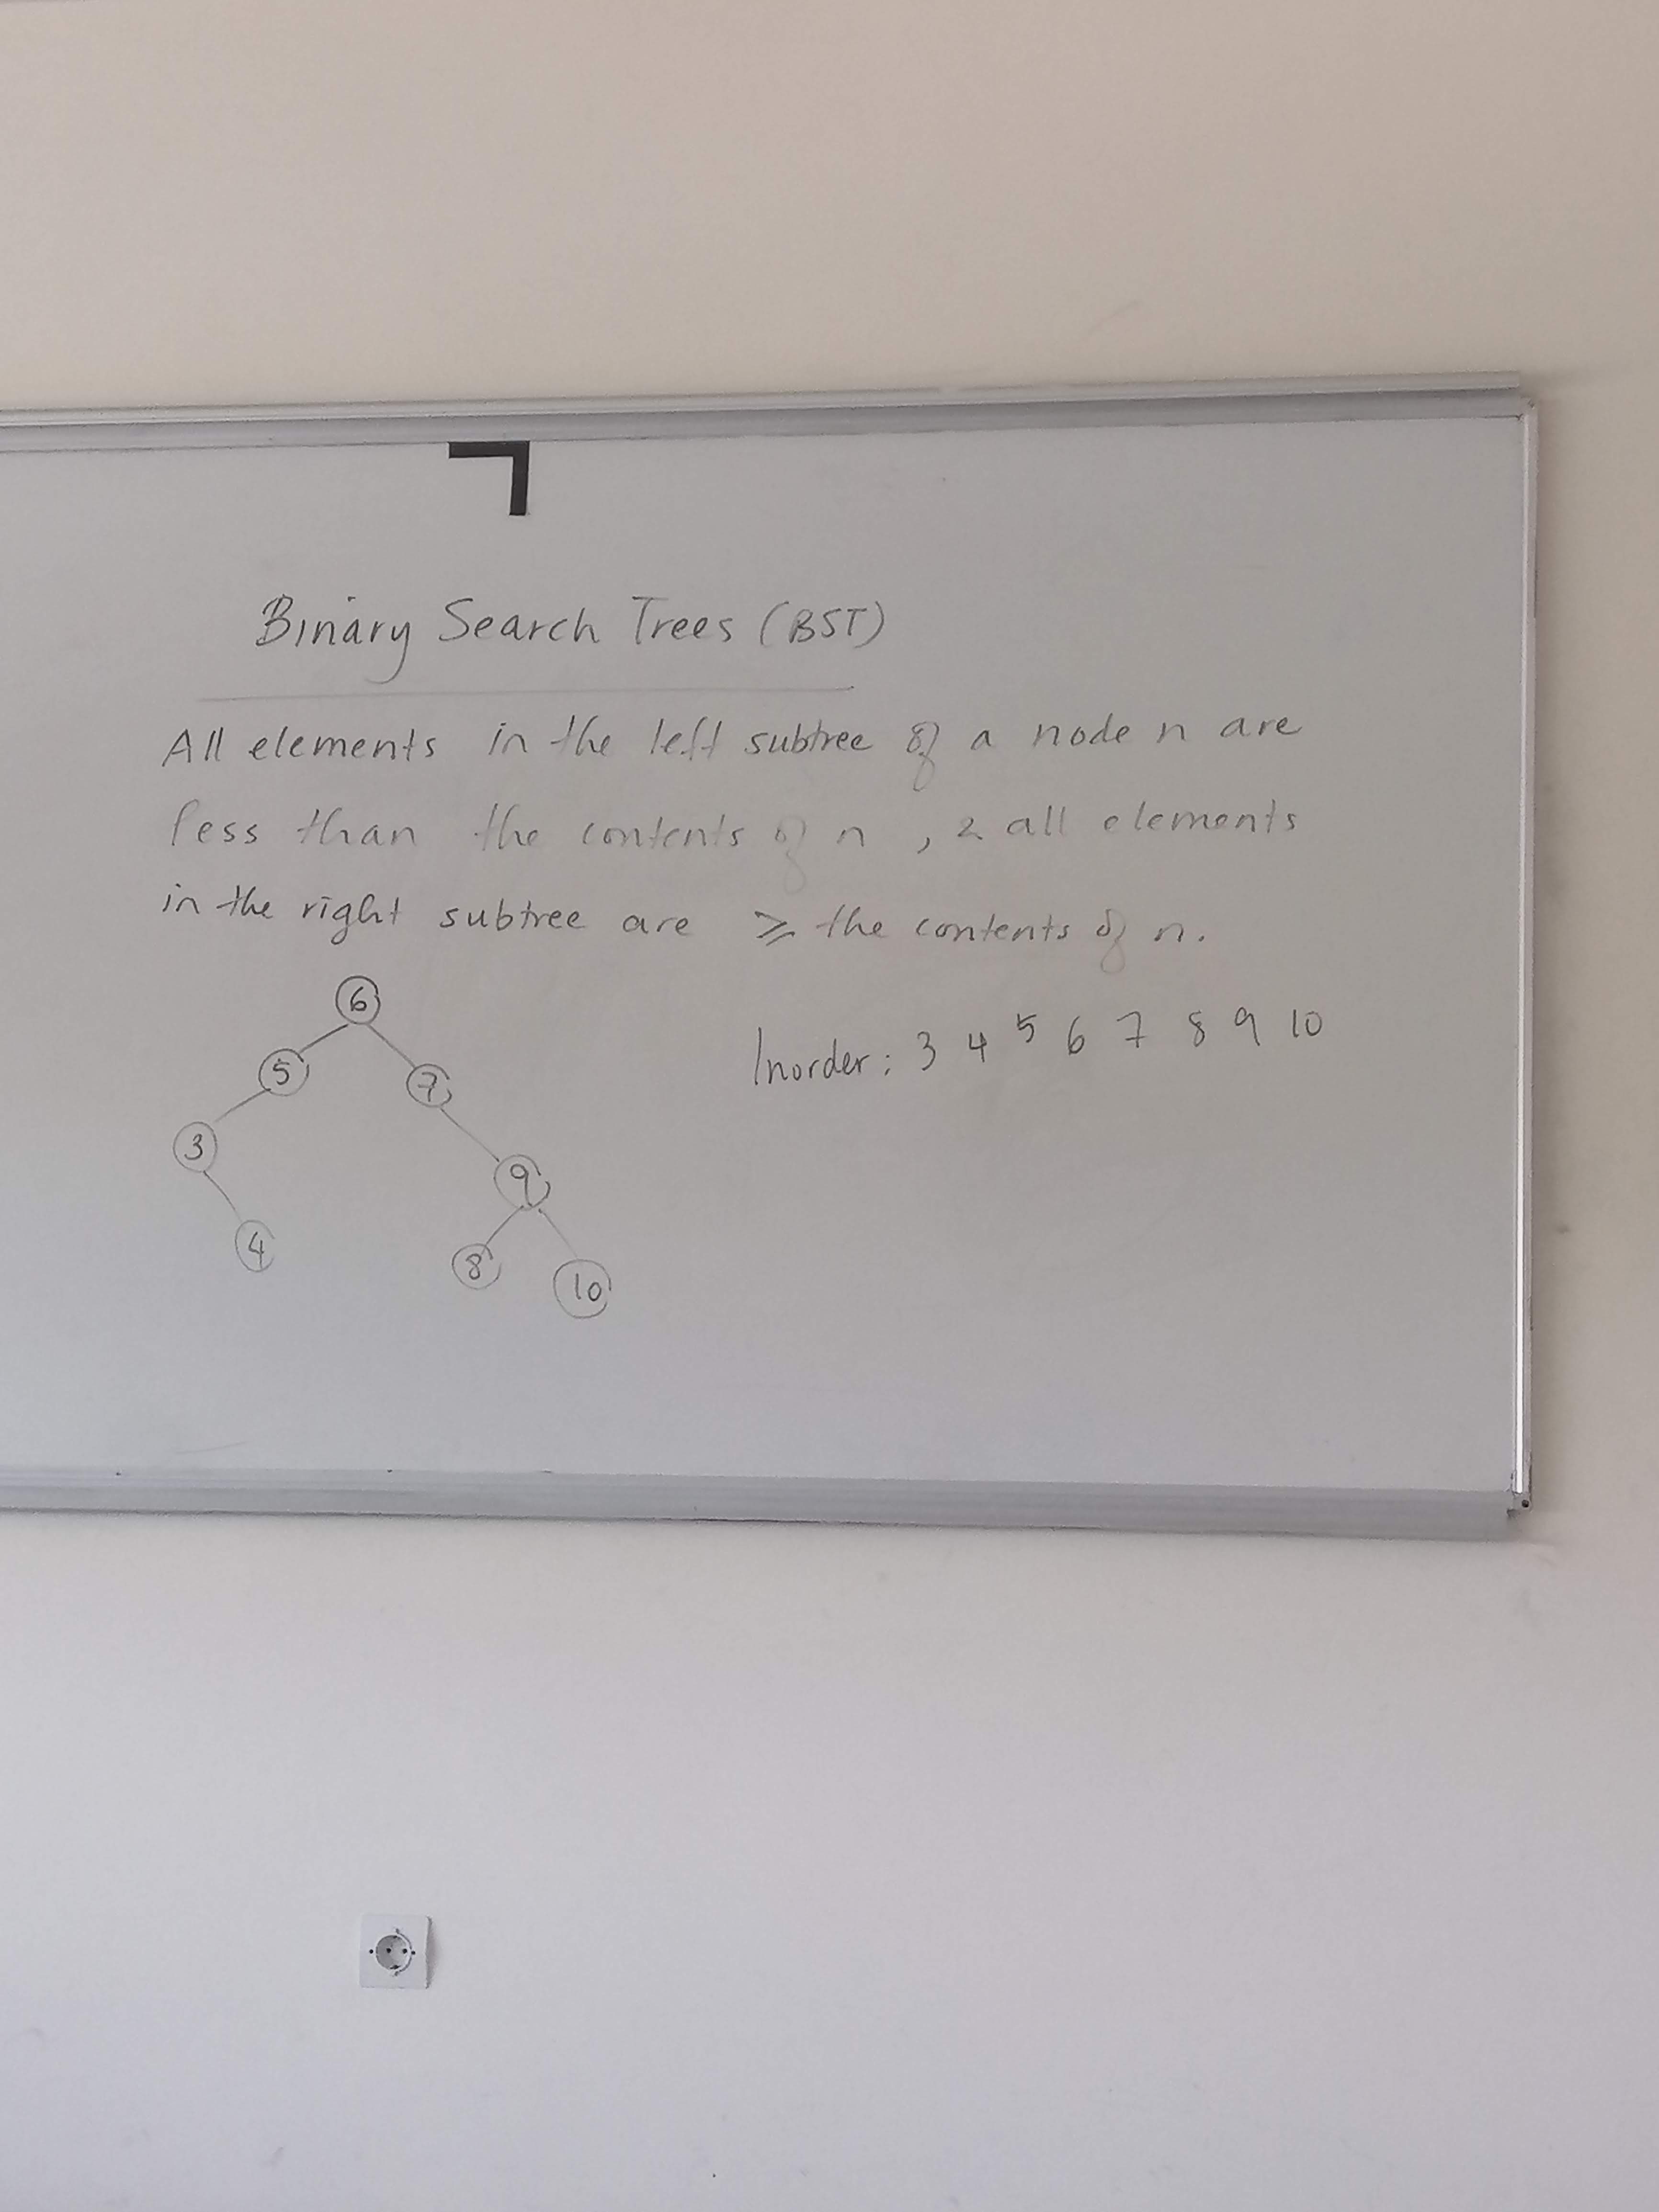 Binary Search Trees (BST)
All elements in the left subtree of a node n are
less than the contents of n , & all elements
in the right subtree are ⩾ the contents of n.
6
Inorder: 3 4 5 6 7 8 9 10
5
7
3
9
4
8
10